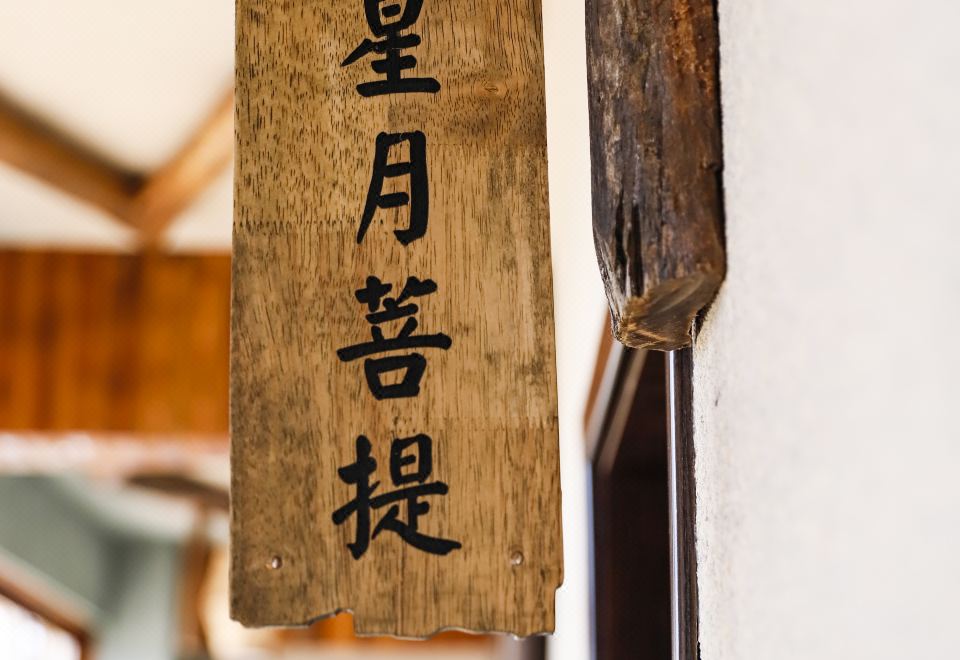 星月菩提